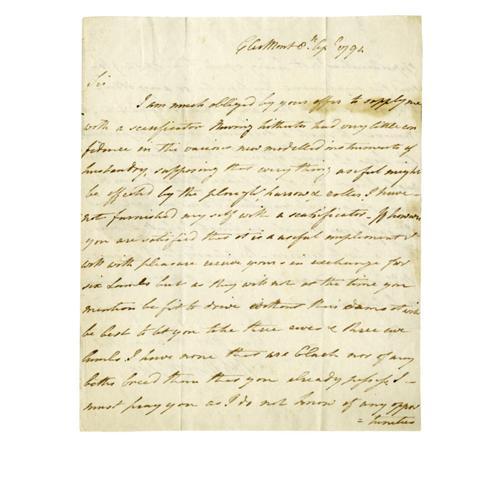 ClerMont 8th Apl 1794
Sir
I am much obliged by your offer to supply me
with a scarificator Having hitherto had very little con
fidence in the various new modelled instruments of
husbandry, supposing that every thing useful might
be effected by the plough harrow & roller. I have
not furnished my self with a scarificator - If however
you are satisfied that it is a useful implement I
will with pleasure receive yours in exchange for
six Lambs but as they will not at the time you
mention be fit to drive without their dams it will
be best to let you take three ewes & three ewe
lambs. I have none that are black nor of any
better breed than that you already possess I
must pray you as I do not know of any oppor
=tunities